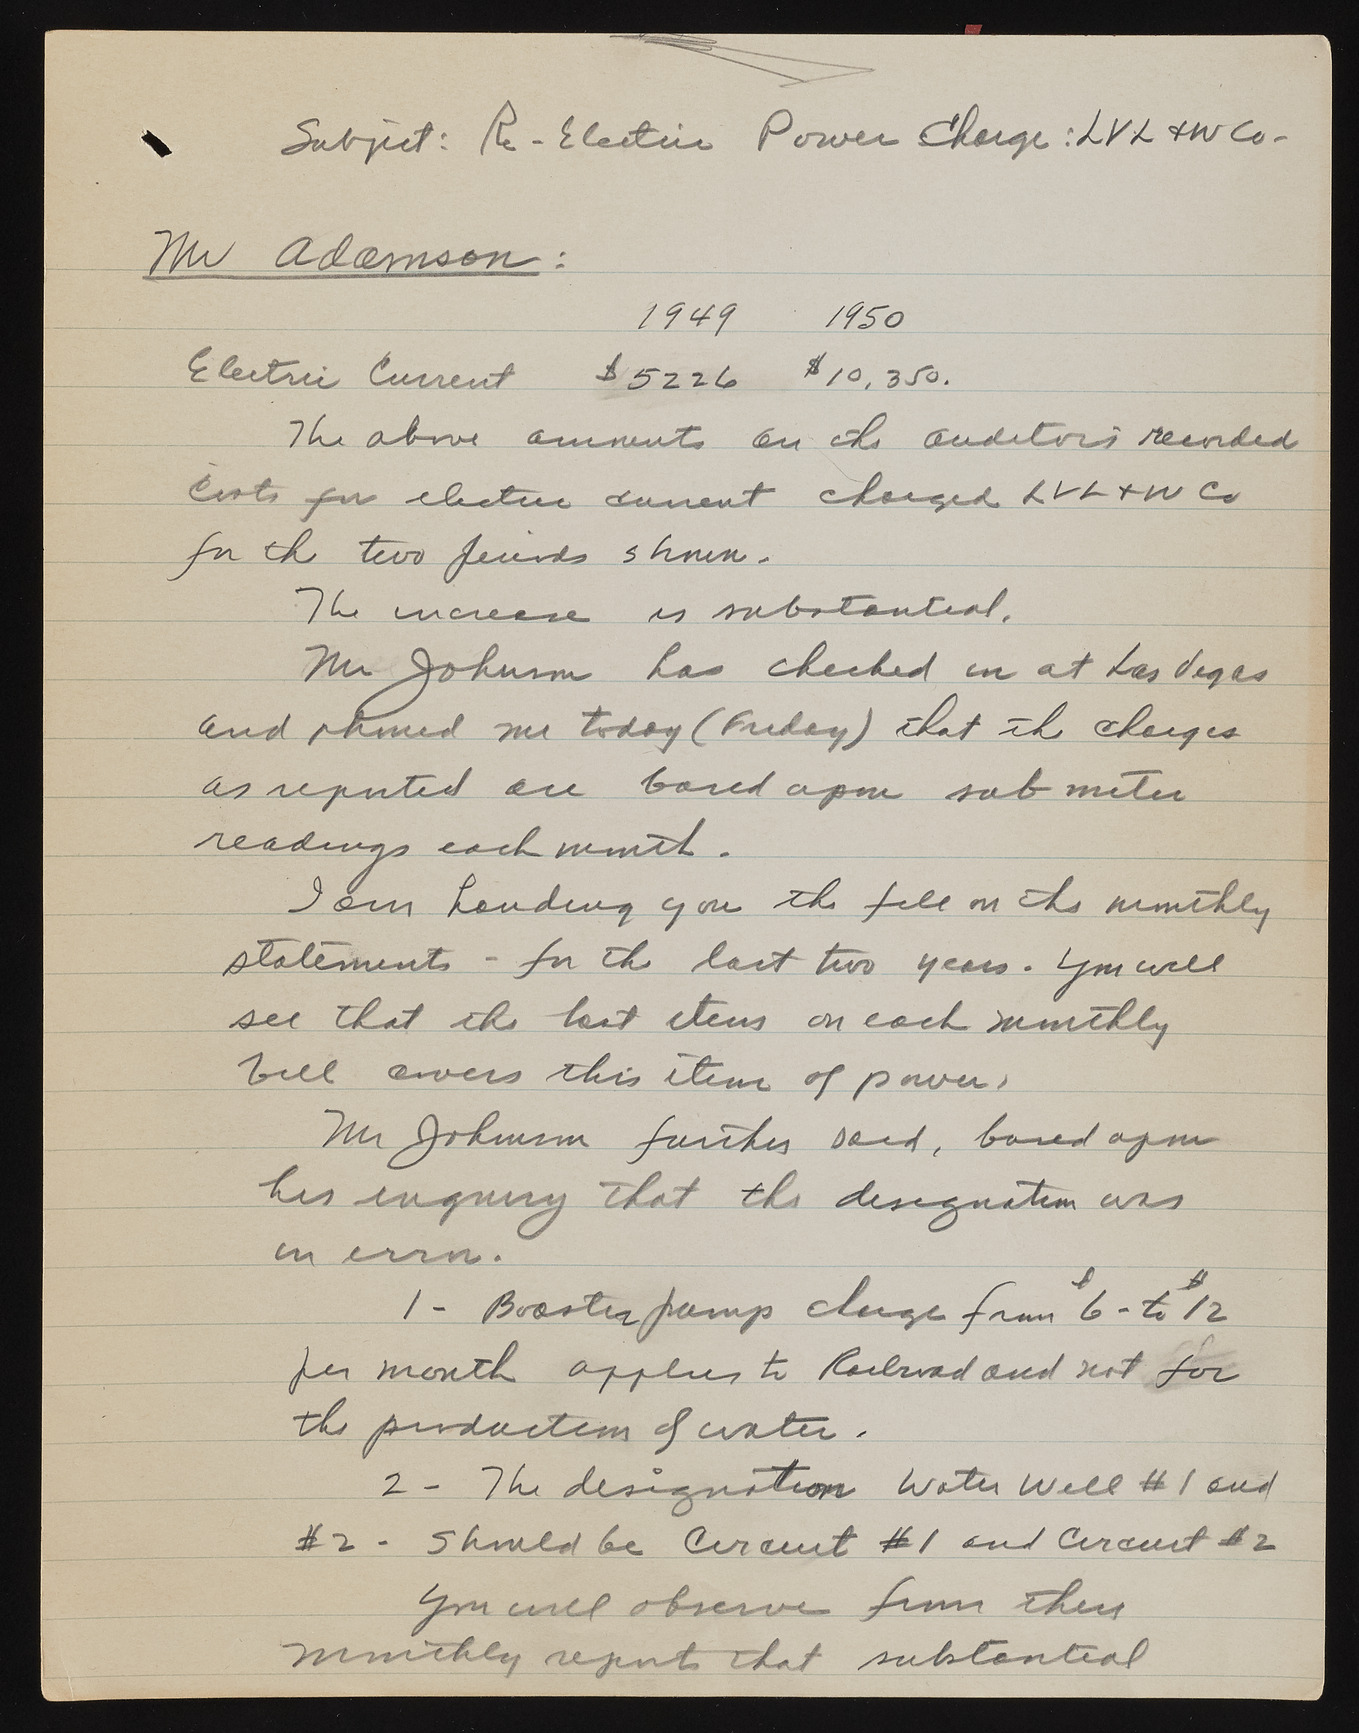 Subject: Re - Electric Power Charge: LVL & W Co -
Mr Adamson:
1949 1950
Electric Current $5226 $10,350.
The above amounts are the auditors recorded
costs for electric current charged LVL & W Co
for the two periods shown.
The increase is substantial.
Mr Johnson has checked in at Las Vegas
and phoned me today (Friday) that the charges
as reported are based upon sub meter
readings each month.
I am handing you the file on the monthly
statements - for the last two years. You will
see that the last item on each monthly
bill covers this item of power.
Mr Johnson further said, based upon
his enquiry that the designation was
in error.
1 - Booster pump charge from $6 - to $12
per month applies to Railroad and not for
the production of water.
2 - The designation Water Well #1 and
#2 - Should be Circuit #1 and Circuit #2
You will observe from these
monthly reports that substantial